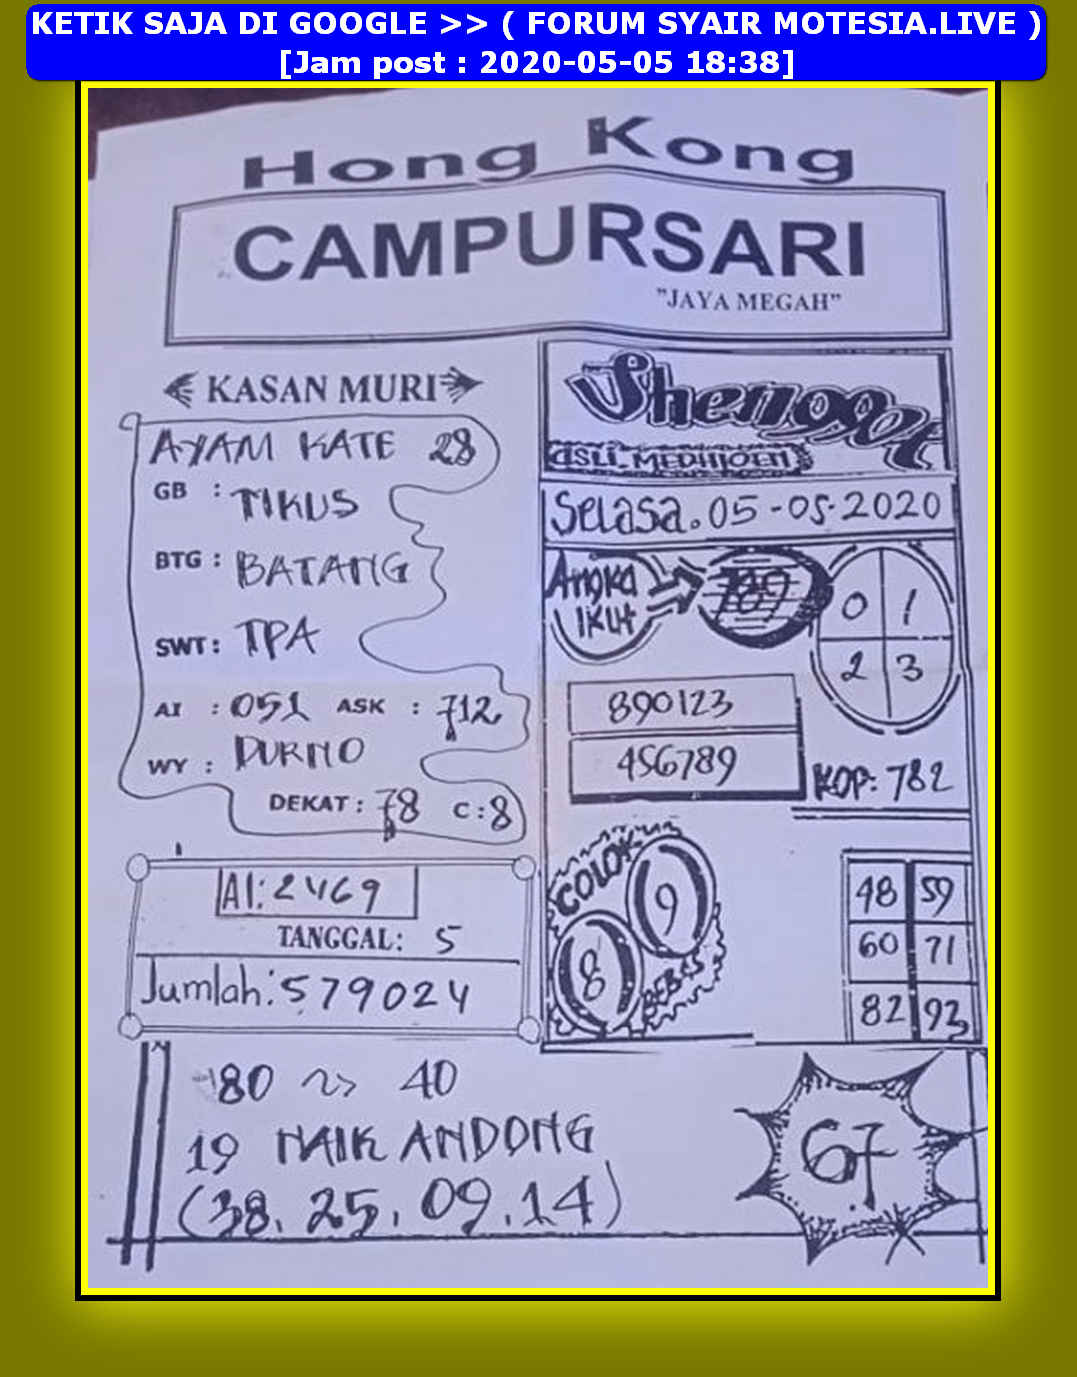 KETIK SAJA DI GOOGLE >> ( FORUM SYAIR MOTESIA.LIVE )
[Jam post : 2020-05-05 18:38]
Hong Kong
CAMPURSARI
"JAYA MEGAH"
KASAN MURI
AYAM KATE 28
GB : TIKUS
BTG : BATANG
SWT : TPA
AI : 051 ASK : 712
WY : DURNO
DEKAT : 78 C : 8
AI: 2469
TANGGAL: 5
Jumlah: 579024
Shenggot
ASLI MEDHIOEN
Selasa. 05-05-2020
Angka
IKUT
789
0 1
2 3
890123
456789
KOP: 782
COLOK
9
8
BEBAS
48 59
60 71
82 93
80 ~> 40
19 NAIK ANDONG
(38. 25. 09. 14)
67